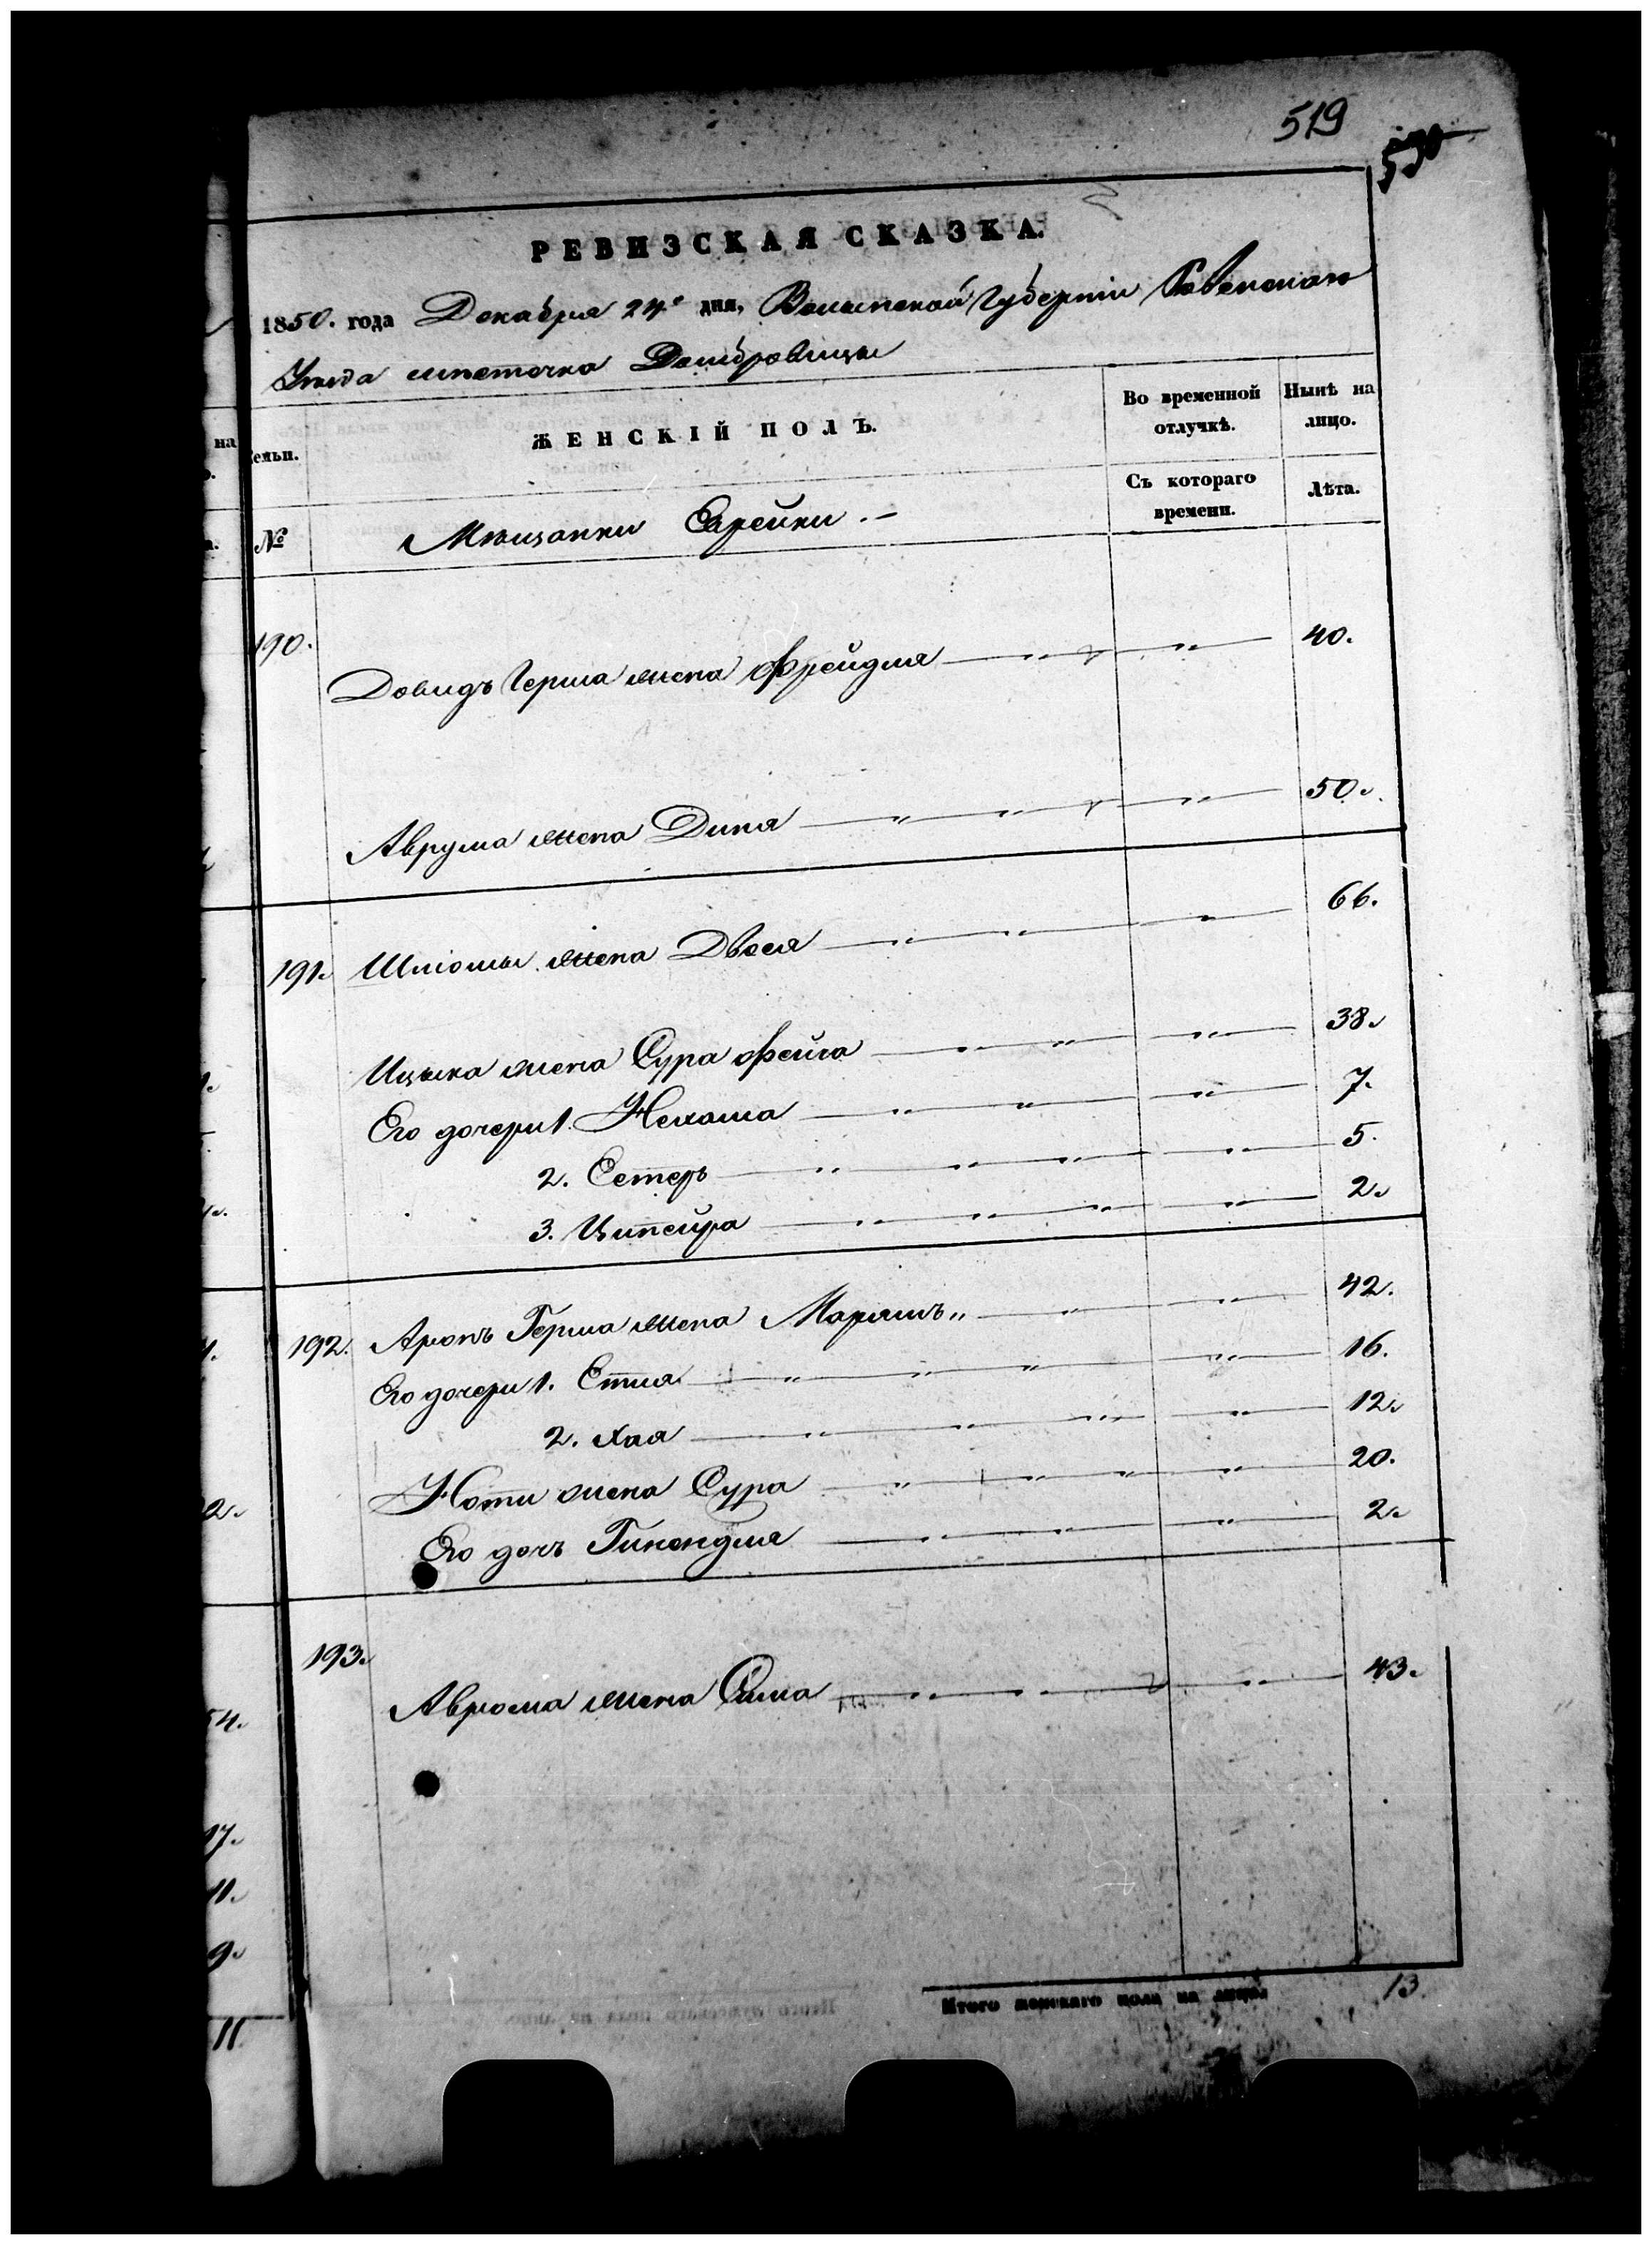 519
530
РЕВИЗСКАЯ СКАЗКА.
1850. года Декабря 24го дня, Волынской Губерніи Ровенскаго
Уѣзда мѣстечка Домбровицы
емьи.
ЖЕНСКІЙ ПОЛЪ.
Во временной отлучкѣ.
Нынѣ на лицо.
№
Мѣщанки Еврейки.—
Съ котораго времени.
Лѣта.
190. Довидъ Герша жена Фрейдля 40.
Аврума жена Диня 50.
191. Шліомы жена Двося 66.
Ицька жена Сура Фейга 38.
Его дочери 1. Нехама 7.
2. Естеръ 5.
3. Ципейра 2.
192. Аронъ Герша жена Марямъ 42.
Его дочери 1. Етля 16.
2. Хая 12.
Ноти жена Сура 20.
Его дочь Гинендля 2.
193. Аврома жена Сима 43.
Итого женскаго пола на лицо 13.